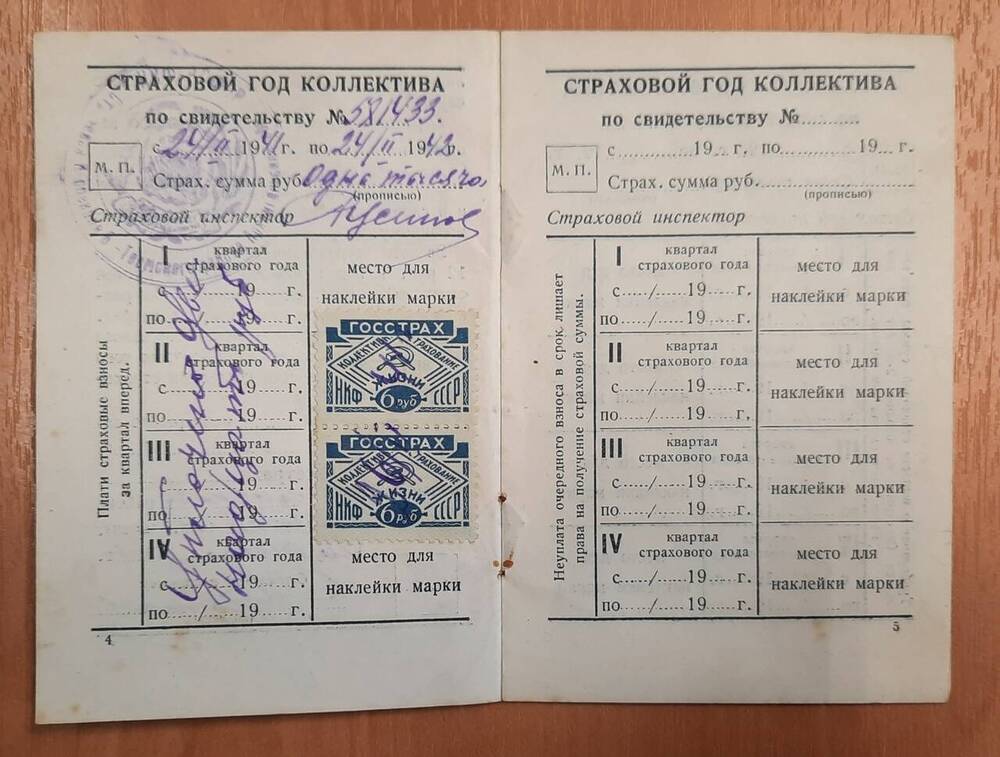 СТРАХОВОЙ ГОД КОЛЛЕКТИВА
по свидетельству № 581433.
с 24/II 1941 г. по 24/II 1942 г.
М. П.
Страх. сумма руб. Одна тысяча
(прописью)
Страховой инспектор
Плати страховые взносы
за квартал вперед.
I квартал
страхового года
с...../......19.....г.
по...../......19.....г.
место для
наклейки марки
II квартал
страхового года
с...../......19.....г.
по...../......19.....г.
III квартал
страхового года
с...../......19.....г.
по...../......19.....г.
IV квартал
страхового года
с...../......19.....г.
по...../......19.....г.
место для
наклейки марки
ГОССТРАХ
КОЛЛЕКТИВНОЕ СТРАХОВАНИЕ
ЖИЗНИ
НКФ 6 руб СССР
ГОССТРАХ
КОЛЛЕКТИВНОЕ СТРАХОВАНИЕ
ЖИЗНИ
НКФ 6 руб СССР
4
СТРАХОВОЙ ГОД КОЛЛЕКТИВА
по свидетельству №..........
с............19....г. по............19....г.
М. П.
Страх. сумма руб.....................
(прописью)
Страховой инспектор
Неуплата очередного взноса в срок лишает
права на получение страховой суммы.
I квартал
страхового года
с...../......19.....г.
по...../......19.....г.
место для
наклейки марки
II квартал
страхового года
с...../......19.....г.
по...../......19.....г.
место для
наклейки марки
III квартал
страхового года
с...../......19.....г.
по...../......19.....г.
место для
наклейки марки
IV квартал
страхового года
с...../......19.....г.
по...../......19.....г.
место для
наклейки марки
5